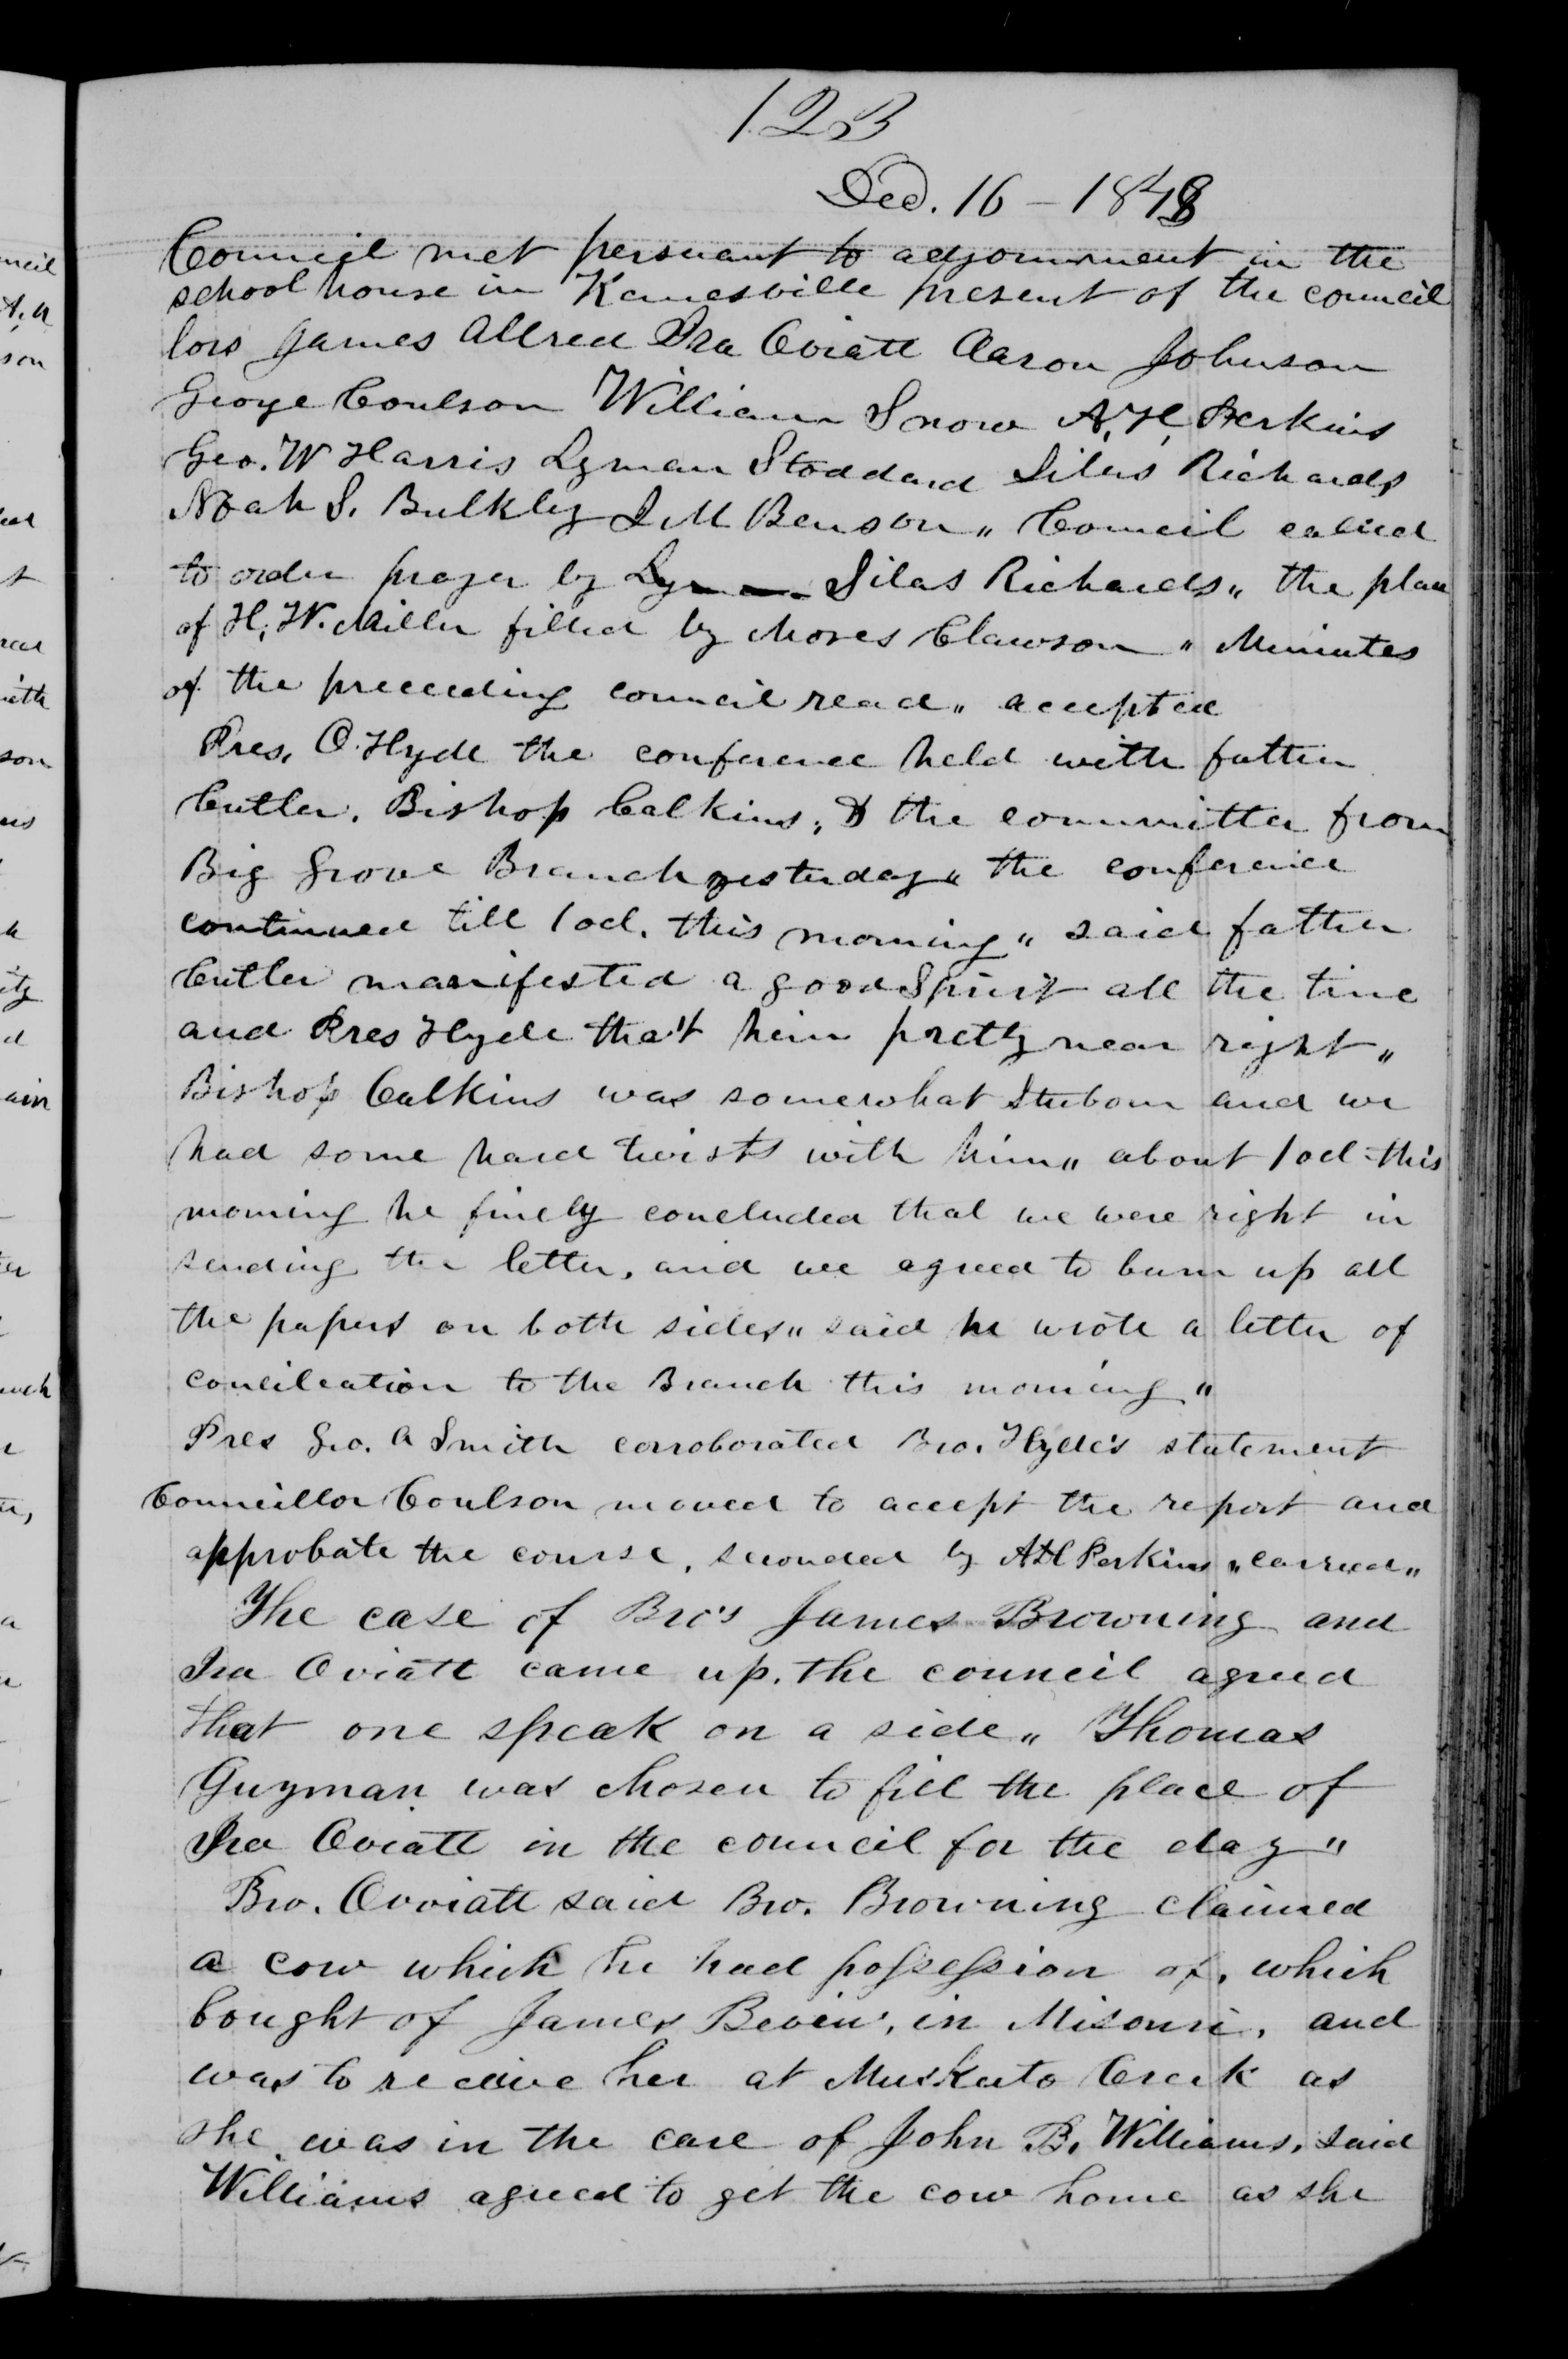 123
Dec. 16 – 1848
Council met persuant to adjournment in the
school house in Kanesville present of the council
lors James Allred Ira Oviatt Aaron Johnson
George Coulson William Snow A. H. Perkins
Geo. W Harris Lyman Stoddard Silas Richards
Noah S. Bulkley J M Benson „ Council called
to order prayer by Lyman Silas Richards „ the place
of H. W. Miller filled by Moses Clawson „ Minutes
of the preceeding council read „ accepted
Pres. O. Hyde the conference held with father
Cutler, Bishop Calkins, & the committee from
Big Grove Branch yesterday „ the conference
continued till 1 ocl. this morning „ said father
Cutler manifested a good Spirit all the time
and Pres Hyde tho't him pretty near right „
Bishop Calkins was somewhat Stuborn and we
had some hard twists with him „ about 1 ocl this
morning he finely concluded that we were right in
sending the letter, and we agreed to burn up all
the papers on both sides „ said he wrote a letter of
concileation to the Branch this morning "
Pres Geo. A Smith corroborated Bro. Hyde's statement
Councillor Coulson moved to accept the report and
approbate the course, seconded by A H Perkins „ carried „
The case of Bro's James Browning and
Ira Oviatt came up. the council agreed
that one speak on a side „ Thomas
Guyman was chosen to fill the place of
Ira Oviatt in the council for the day "
Bro. Ovviatt said Bro. Browning claimed
a cow which he had possession of, which
bought of James Bevin', in Misouri, and
was to receive her at Muskuto Creek as
she was in the care of John B. Williams, said
Williams agreed to get the cow home as she